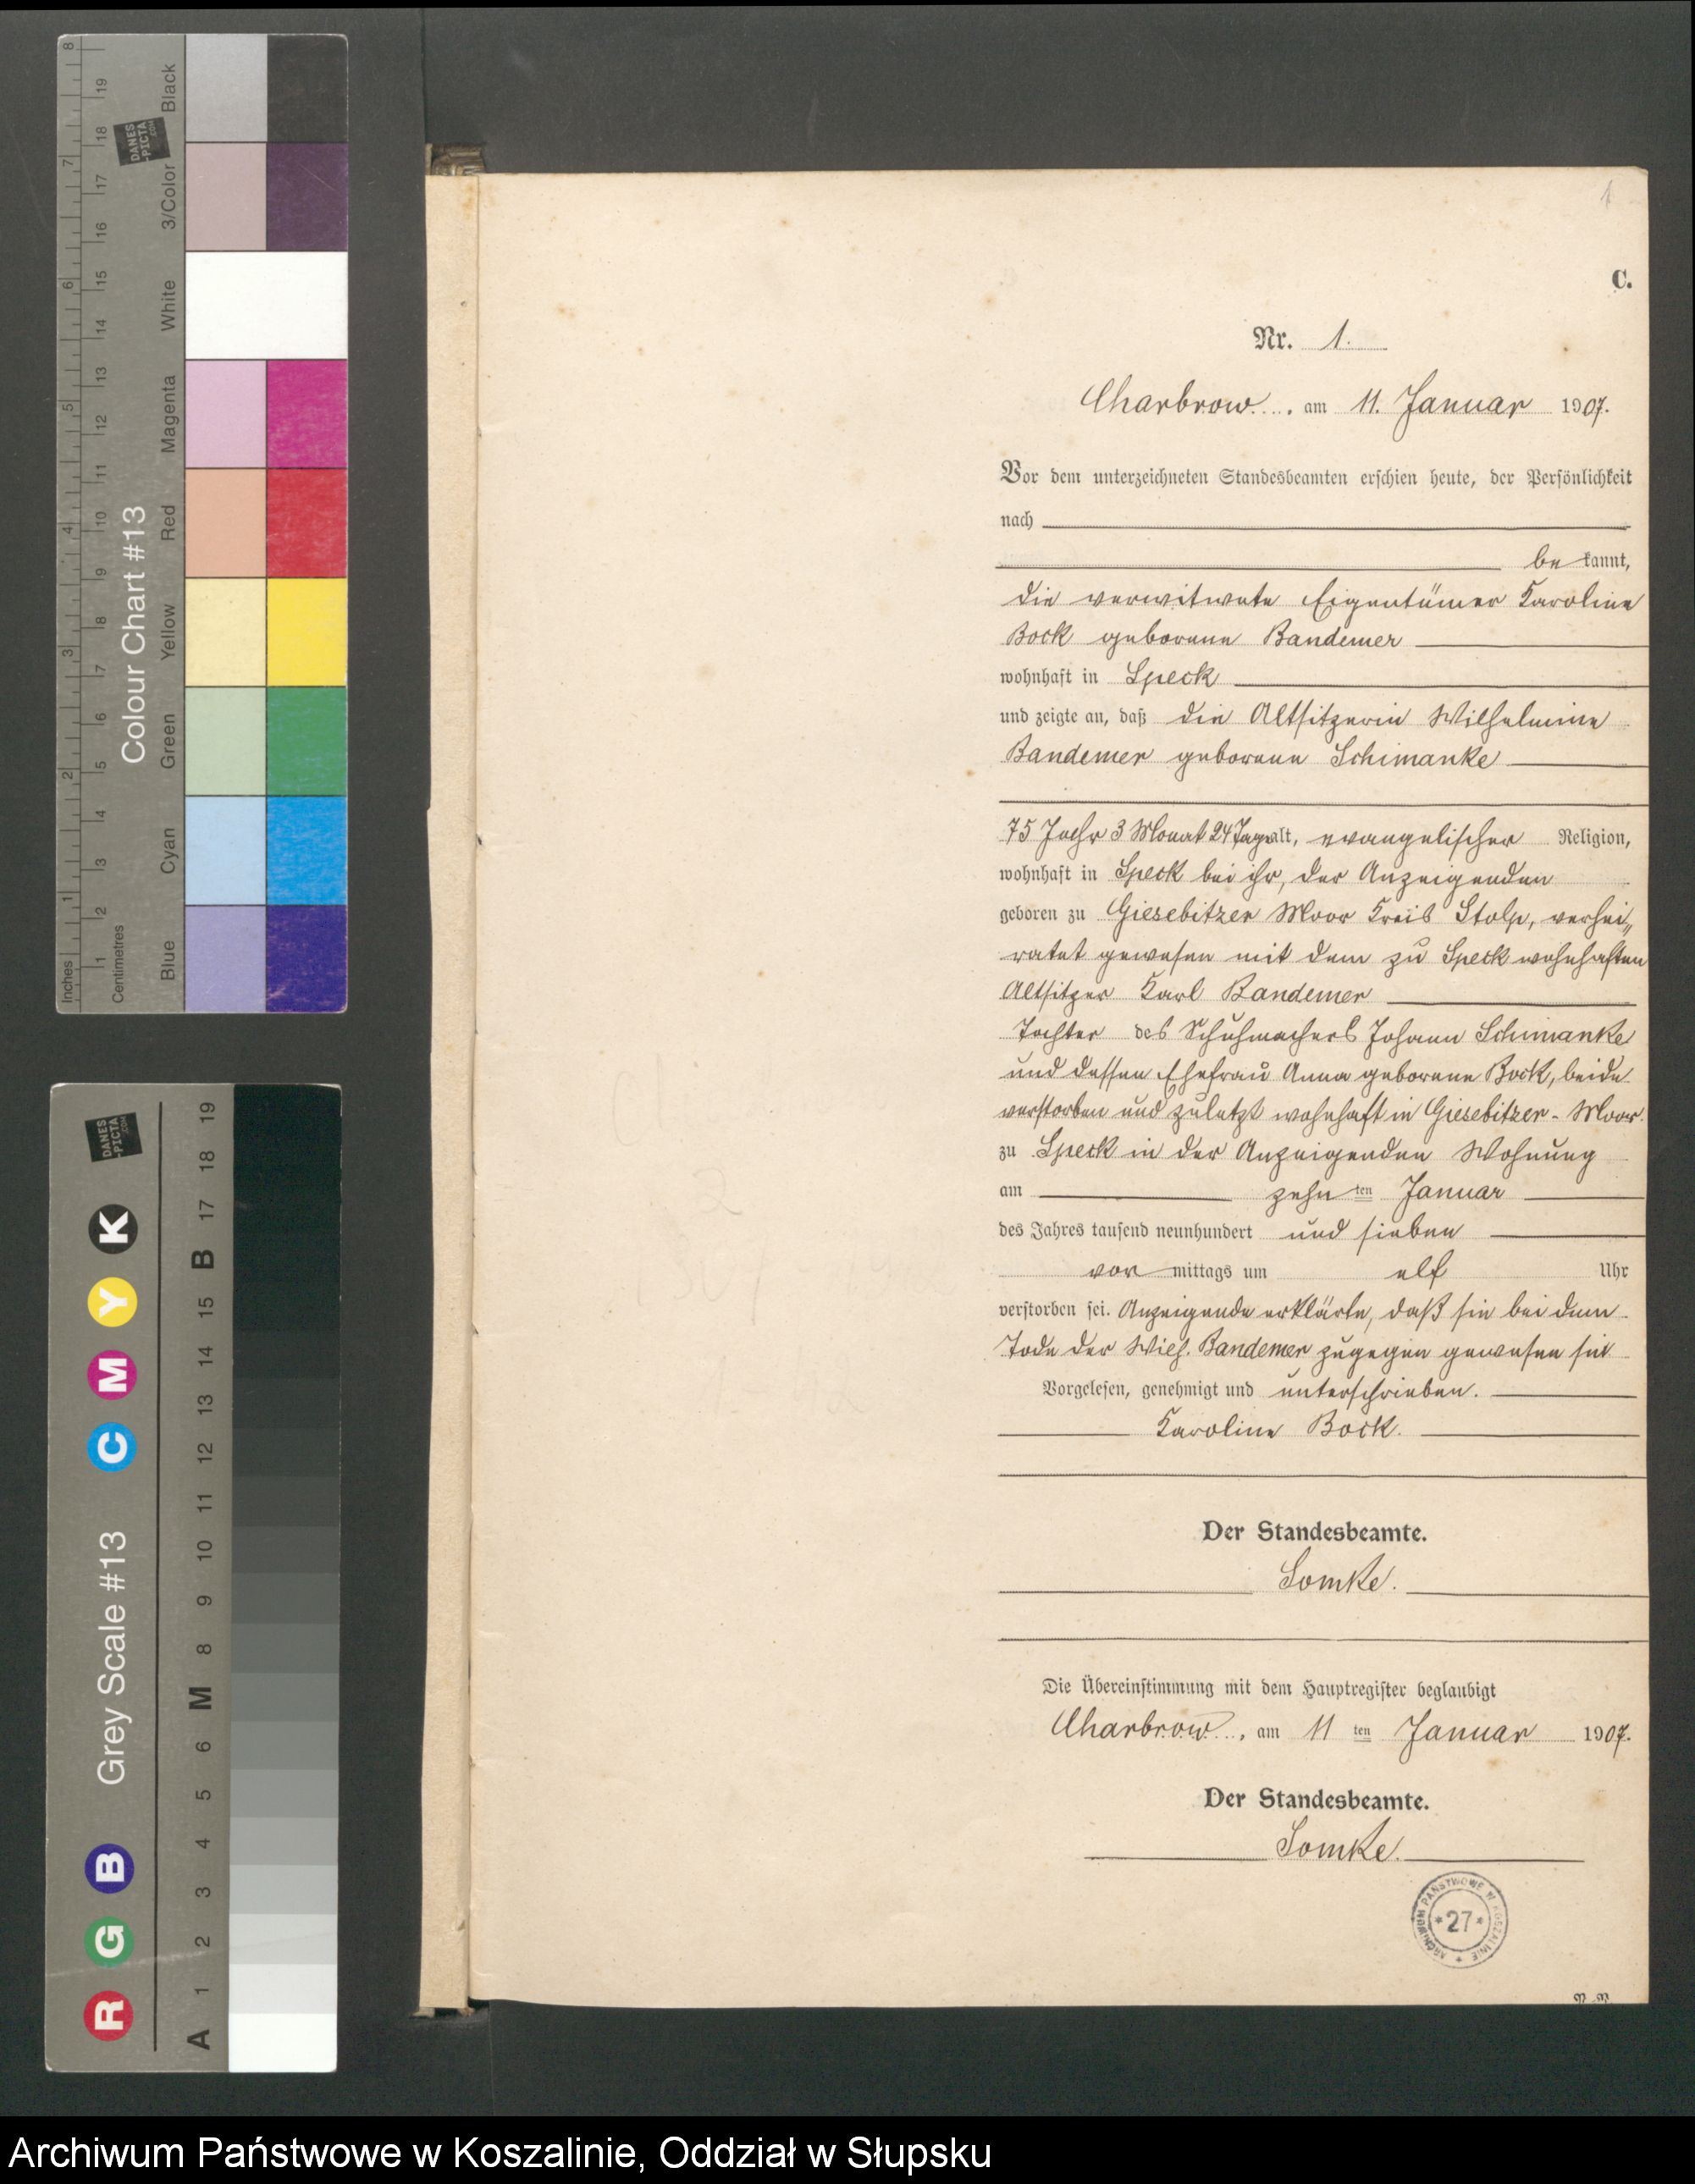 1
C.
Nr. 1.
Charbrow, am 11. Januar 1907.
Vor dem unterzeichneten Standesbeamten erschien heute, der Persönlichkeit
nach
be kannt,
die verwitwete Eigentümer Karoline
Bock geborene Bandemer
wohnhaft in Speck
und zeigte an, daß die Altsitzerin Wilhelmine
Bandemer geborene Schimanke
75 Jahr 3 Monat 24 Tage alt, evangelischer Religion,
wohnhaft in Speck bei ihr, der Anzeigenden
geboren zu Giesebitzer Moor Kreis Stolp, verhei„
ratet gewesen mit dem zu Speck wohnhaften
Altsitzer Karl Bandemer
Tochter des Schuhmachers Johann Schimanke
und dessen Ehefrau Anna geborene Bock, beide
verstorben und zuletzt wohnhaft in Giesebitzer-Moor.
zu Speck in der Anzeigenden Wohnung
am zehn ten Januar
des Jahres tausend neunhundert und sieben
vor mittags um elf Uhr
verstorben sei. Anzeigende erklärte, daß sie bei dem
Tode der Wilh. Bandemer zugegen gewesen sei
Vorgelesen, genehmigt und unterschrieben.
Karoline Bock.
Der Standesbeamte.
Somke.
Die Übereinstimmung mit dem Hauptregister beglaubigt
Charbrow, am 11 ten Januar 1907.
Der Standesbeamte.
Somke.
ARCHIWUM PAŃSTWOWE W KOSZALINIE
*27*
Inches 1 2 3 4 5 6 7 8
Centimetres 1 2 3 4 5 6 7 8 9 10 11 12 13 14 15 16 17 18 19
Colour Chart #13
Blue Cyan Green Yellow Red Magenta White 3/Color Black
DANES
-PICTA
.COM
Grey Scale #13
R G B C M Y K
A 1 2 3 4 5 6 M 8 9 10 11 12 13 14 15 B 17 18 19
DANES
-PICTA
.COM
Archiwum Państwowe w Koszalinie, Oddział w Słupsku